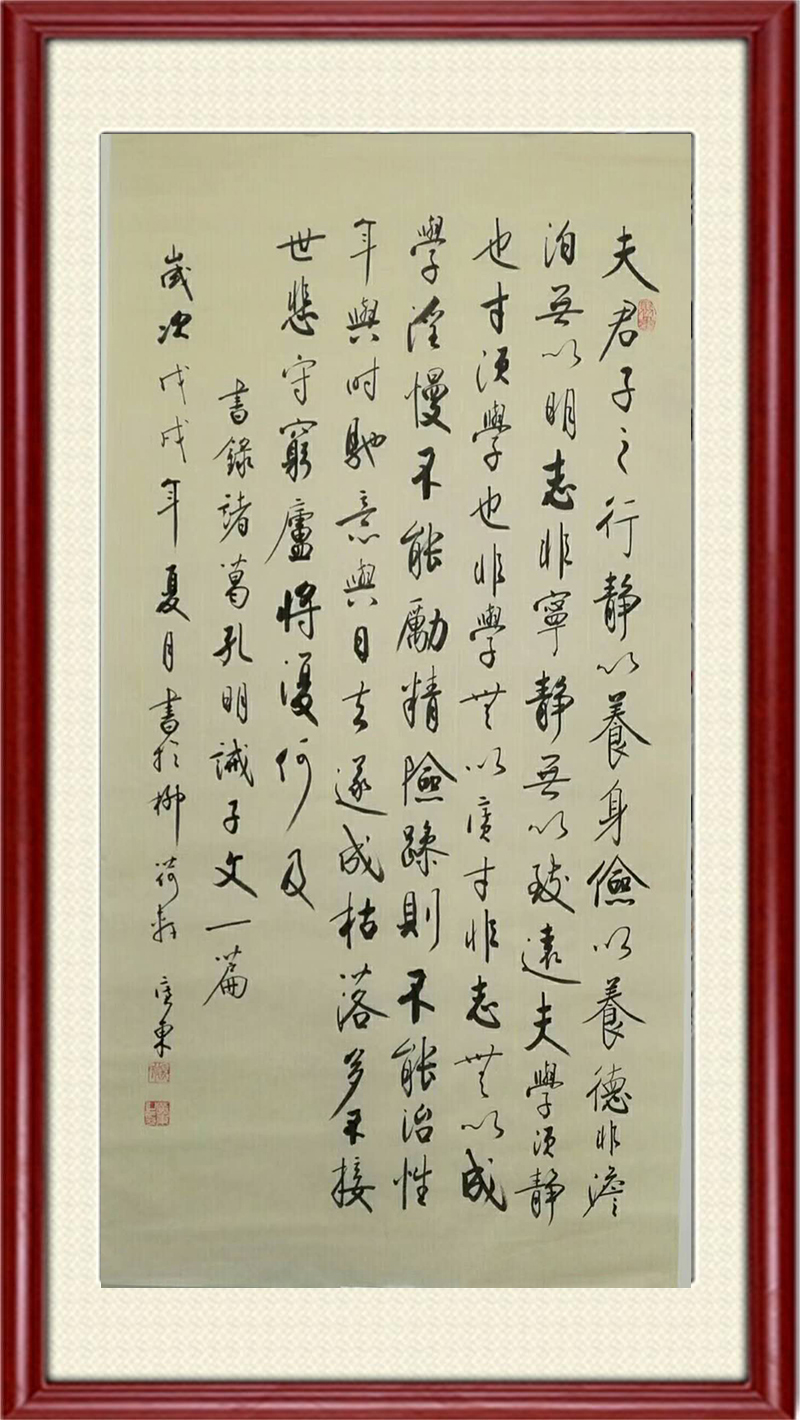 夫君子之行静以養身儉以養德非澹
泊無以明志非寧静無以致遠夫學須静
也才須學也非學無以廣才非志無以成
學淫慢不能勵精險躁則不能治性
年與时馳意與日去遂成枯落多不接
世悲守窮廬將復何及
書錄諸葛孔明誡子文一篇
歲次戊戌年夏月書於柳荷軒東